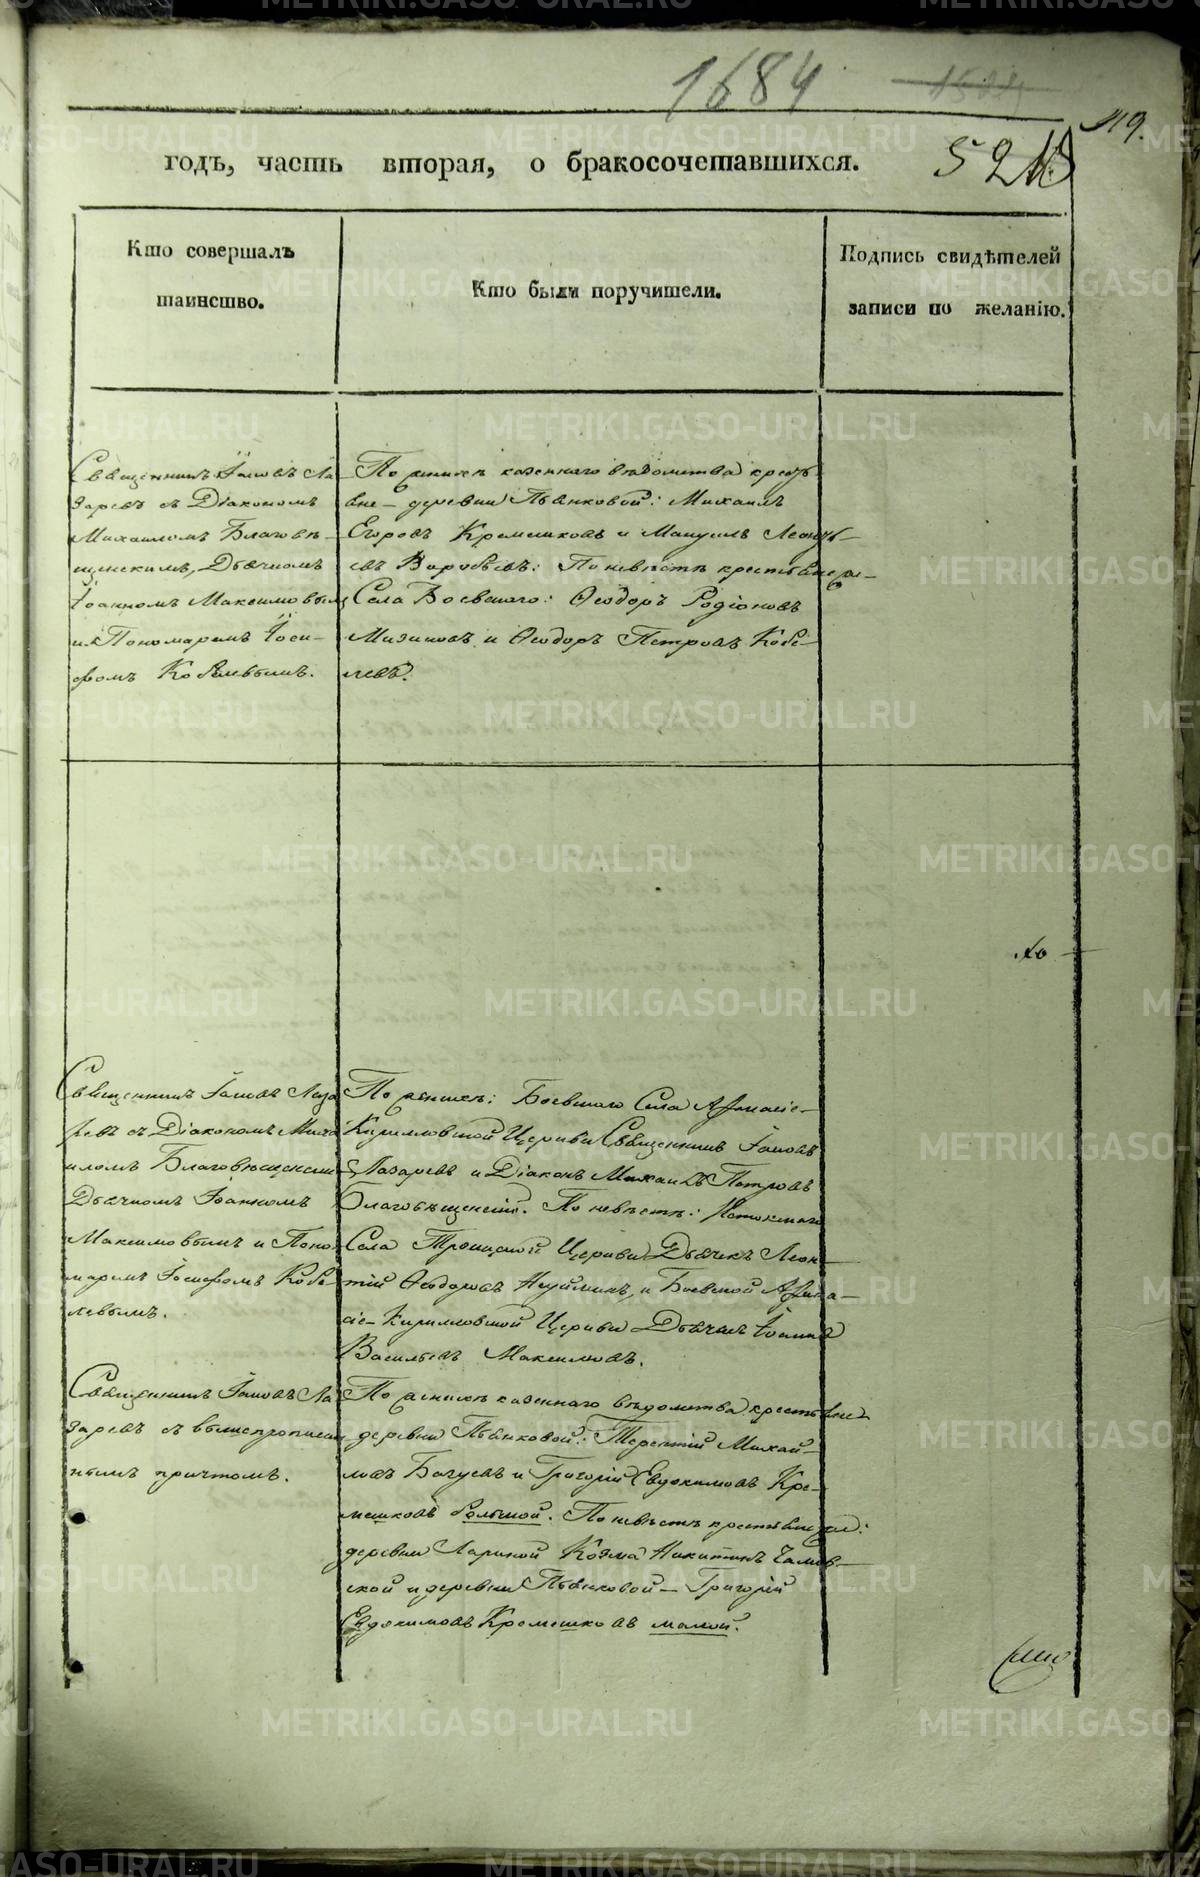 1684
119.
годъ, часть вторая, о бракосочетавшихся.
52
Кто совершалъ
таинство.
Кто были поручители.
Подпись свидѣтелей
записи по желанію.
Священникъ Іаковъ Ла
заревъ съ Діакономъ
Михаиломъ Благовѣ-
щенскимъ, Дьячкомъ
Іоанномъ Максимовымъ
и Пономаремъ Іоси-
фомъ Кобелевымъ.
По женихѣ казеннаго вѣдомства кресть
яне деревни Пьянковой: Михаилъ
Егоровъ Кремешковъ и Мануилъ Леонть-
евъ Воробьевъ: По невѣстѣ крестьяне
Села Боевскаго: Ѳеодоръ Родіоновъ
Мизиновъ и Ѳеодоръ Петровъ Кобе-
левъ.
Священникъ Іаковъ Лаза
ревъ съ Діакономъ Миха
иломъ Благовѣщенским
Дьячкомъ Іоанномъ
Максимовымъ и Поно
маремъ Іосифомъ Кобе-
левымъ.
По женихѣ: Боевскаго Села Афанасіе-
Кирилловской Церкви Священникъ Іаковъ
Лазаревъ и Діаконъ Михаилъ Петровъ
Благовѣщенскій. По невѣстѣ:
Села Троицкой Церкви Дьячекъ Леон-
тій Ѳеодоровъ Неуйминъ, и Боевской Афана-
сіе-Кирилловской Церкви Дьячекъ Іоаннъ
Васильевъ Максимовъ.
Священникъ Іаковъ Ла
заревъ съ вышепрописан
нымъ причтомъ.
По женихѣ казеннаго вѣдомства крестьяне
деревни Пьянковой: Терентій Михай-
ловъ Багуевъ и Григорій Евдокимовъ Кре-
мешковъ большой. По невѣстѣ крестьяне:
деревни Лариной Козма Никитинъ
ской и деревни Пьянковой Григорій
Евдокимовъ Кремешковъ малой.
METRIKI.GASO-URAL.RU